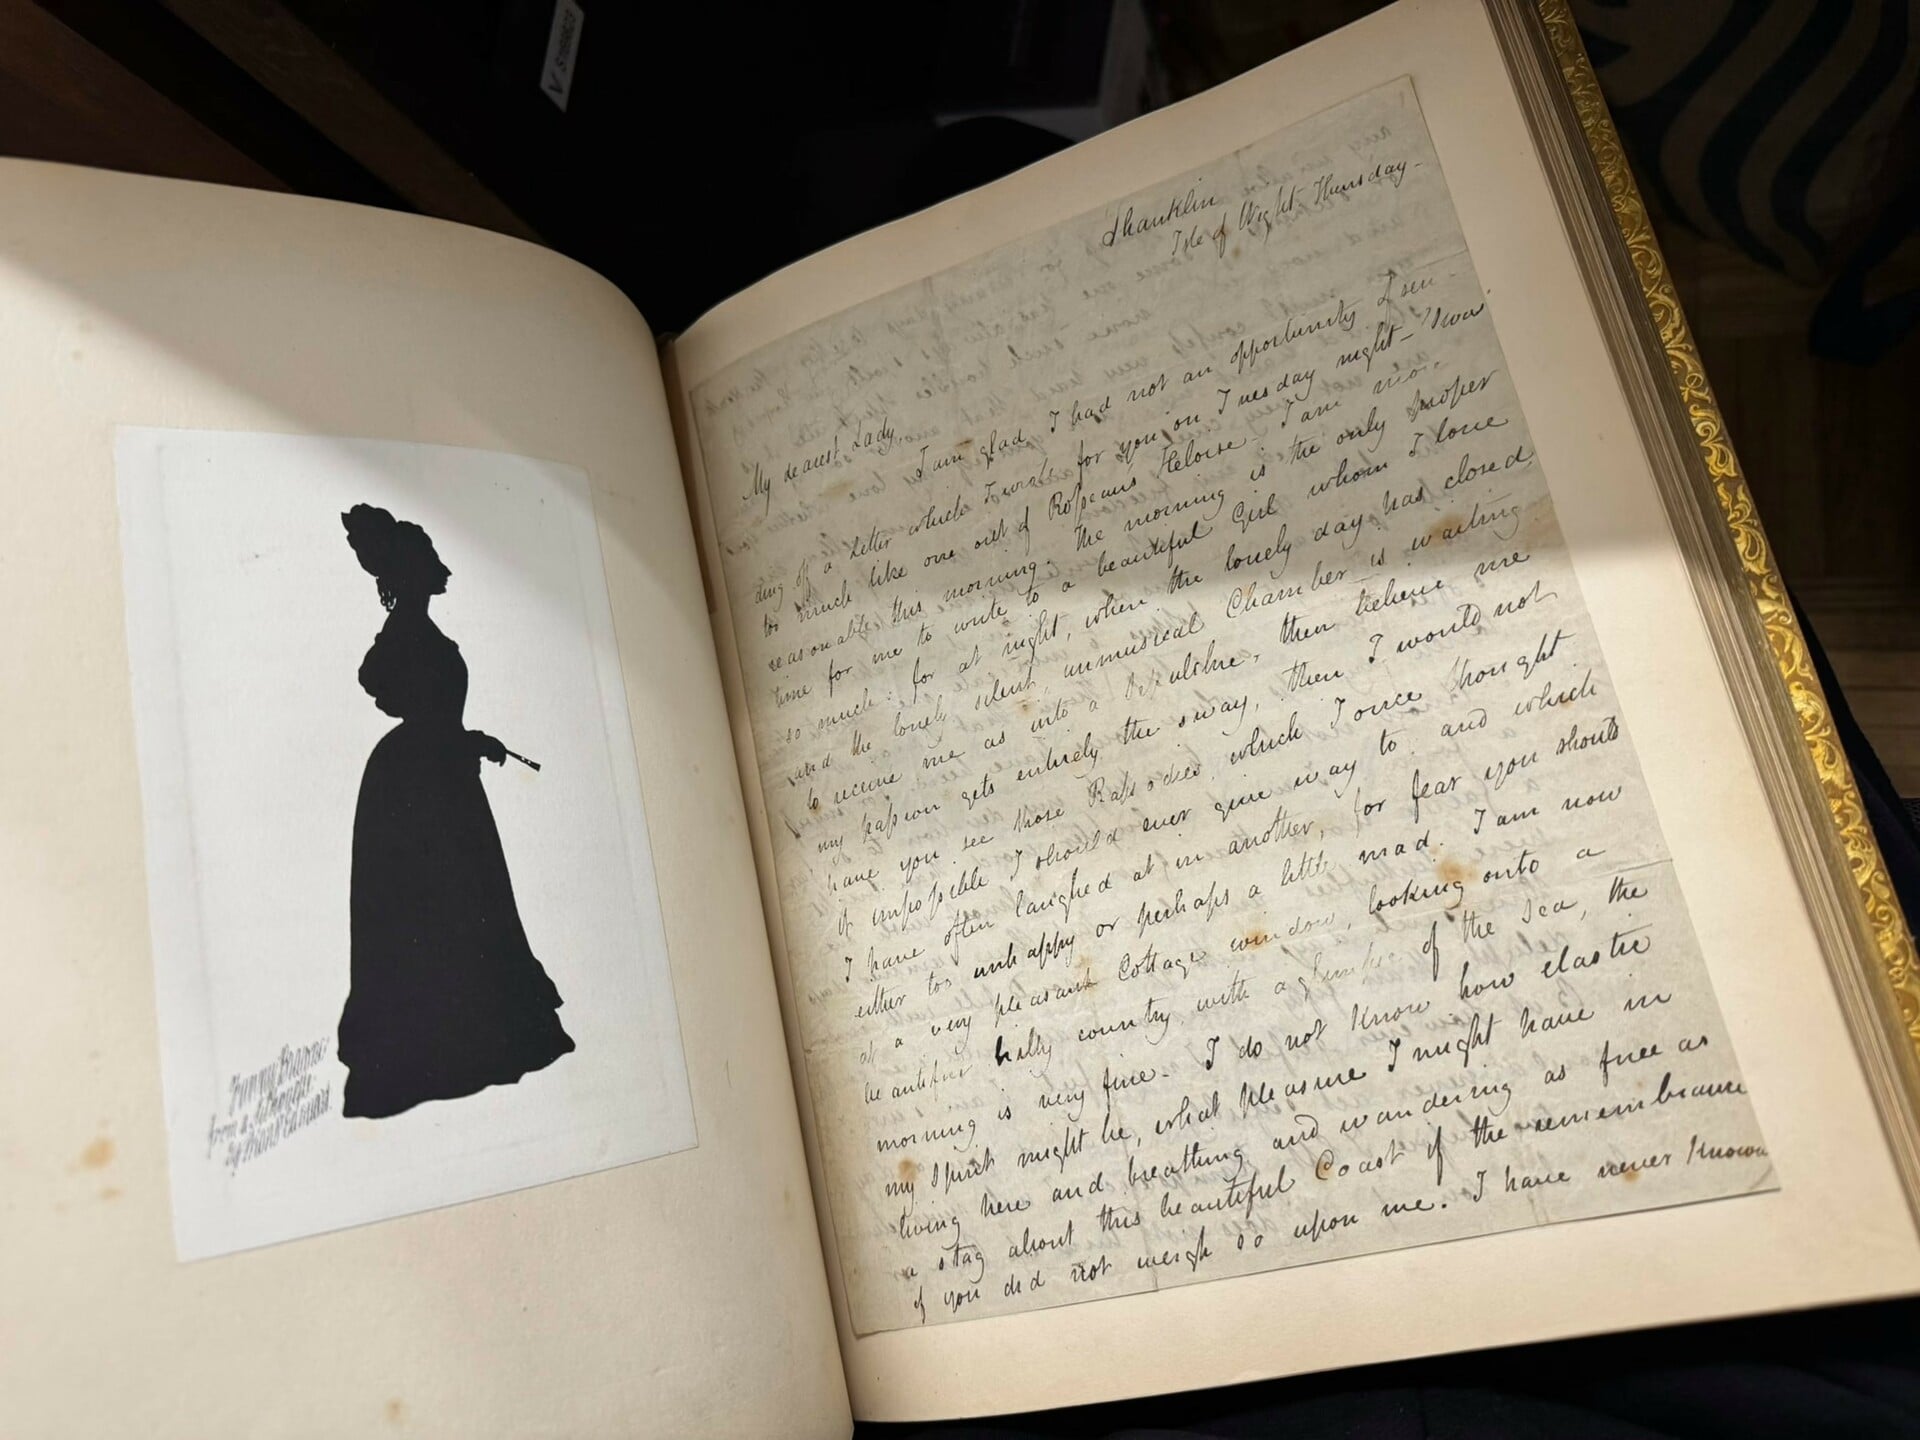 Fanny Brawne
from a silhouette
by Mons. Edouart
Shanklin
Isle of Wight Thursday -
My dearest Lady,
I am glad I had not an opportunity of sen-
ding off a Letter which I wrote for you on Tuesday night - 'twas
too much like one out of Rousseau's Heloise. I am more
reasonable this morning. The morning is the only proper
time for me to write to a beautiful Girl whom I love
so much: for at night, when the lonely day has closed
and the lonely silent, unmusical Chamber is waiting
to receive me as into a Sepulchre, then believe me
my passion gets entirely the sway, then I would not
have you see those Rapsodies which I once thought
it impossible I should ever give way to and which
I have often laughed at in another, for fear you should
either too unhappy or perhaps a little mad. I am now
at a very pleasant Cottage window, looking onto a
beautiful hilly country, with a glimpse of the Sea, the
morning is very fine. I do not know how elastic
my Spirit might be, what pleasure I might have in
living here and breathing and wandering as free as
a stag about this beautiful Coast if the remembrance
of you did not weigh so upon me. I have never known